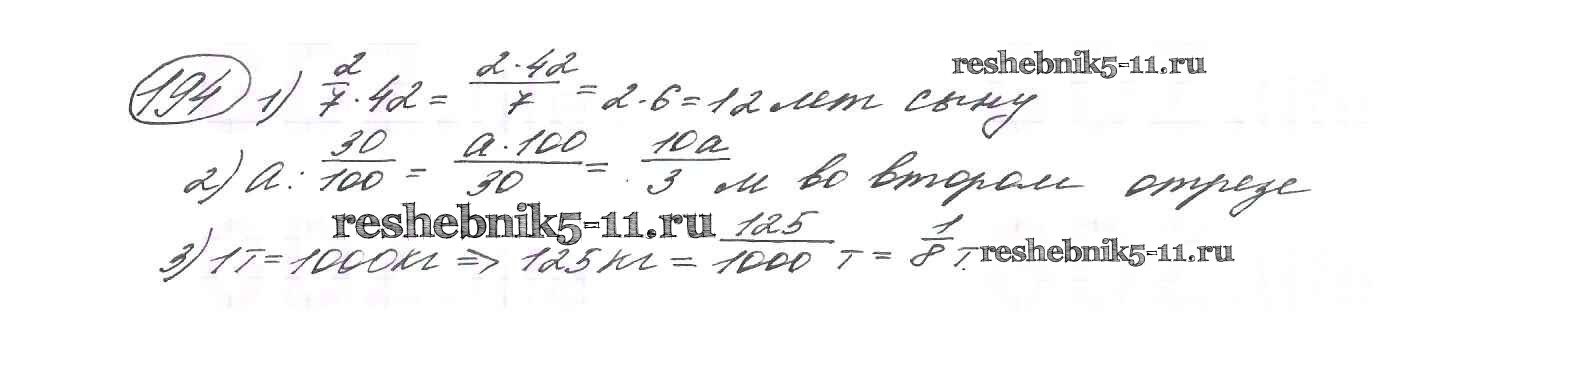 194 1) 2/7 · 42 = 2·42/7 = 2·6 = 12 лет сыну reshebnik5-11.ru
2) a : 30/100 = a·100/30 = 10a/3 м во втором отрезе
reshebnik5-11.ru
3) 1т = 1000кг => 125кг = 125/1000 т = 1/8 т. reshebnik5-11.ru